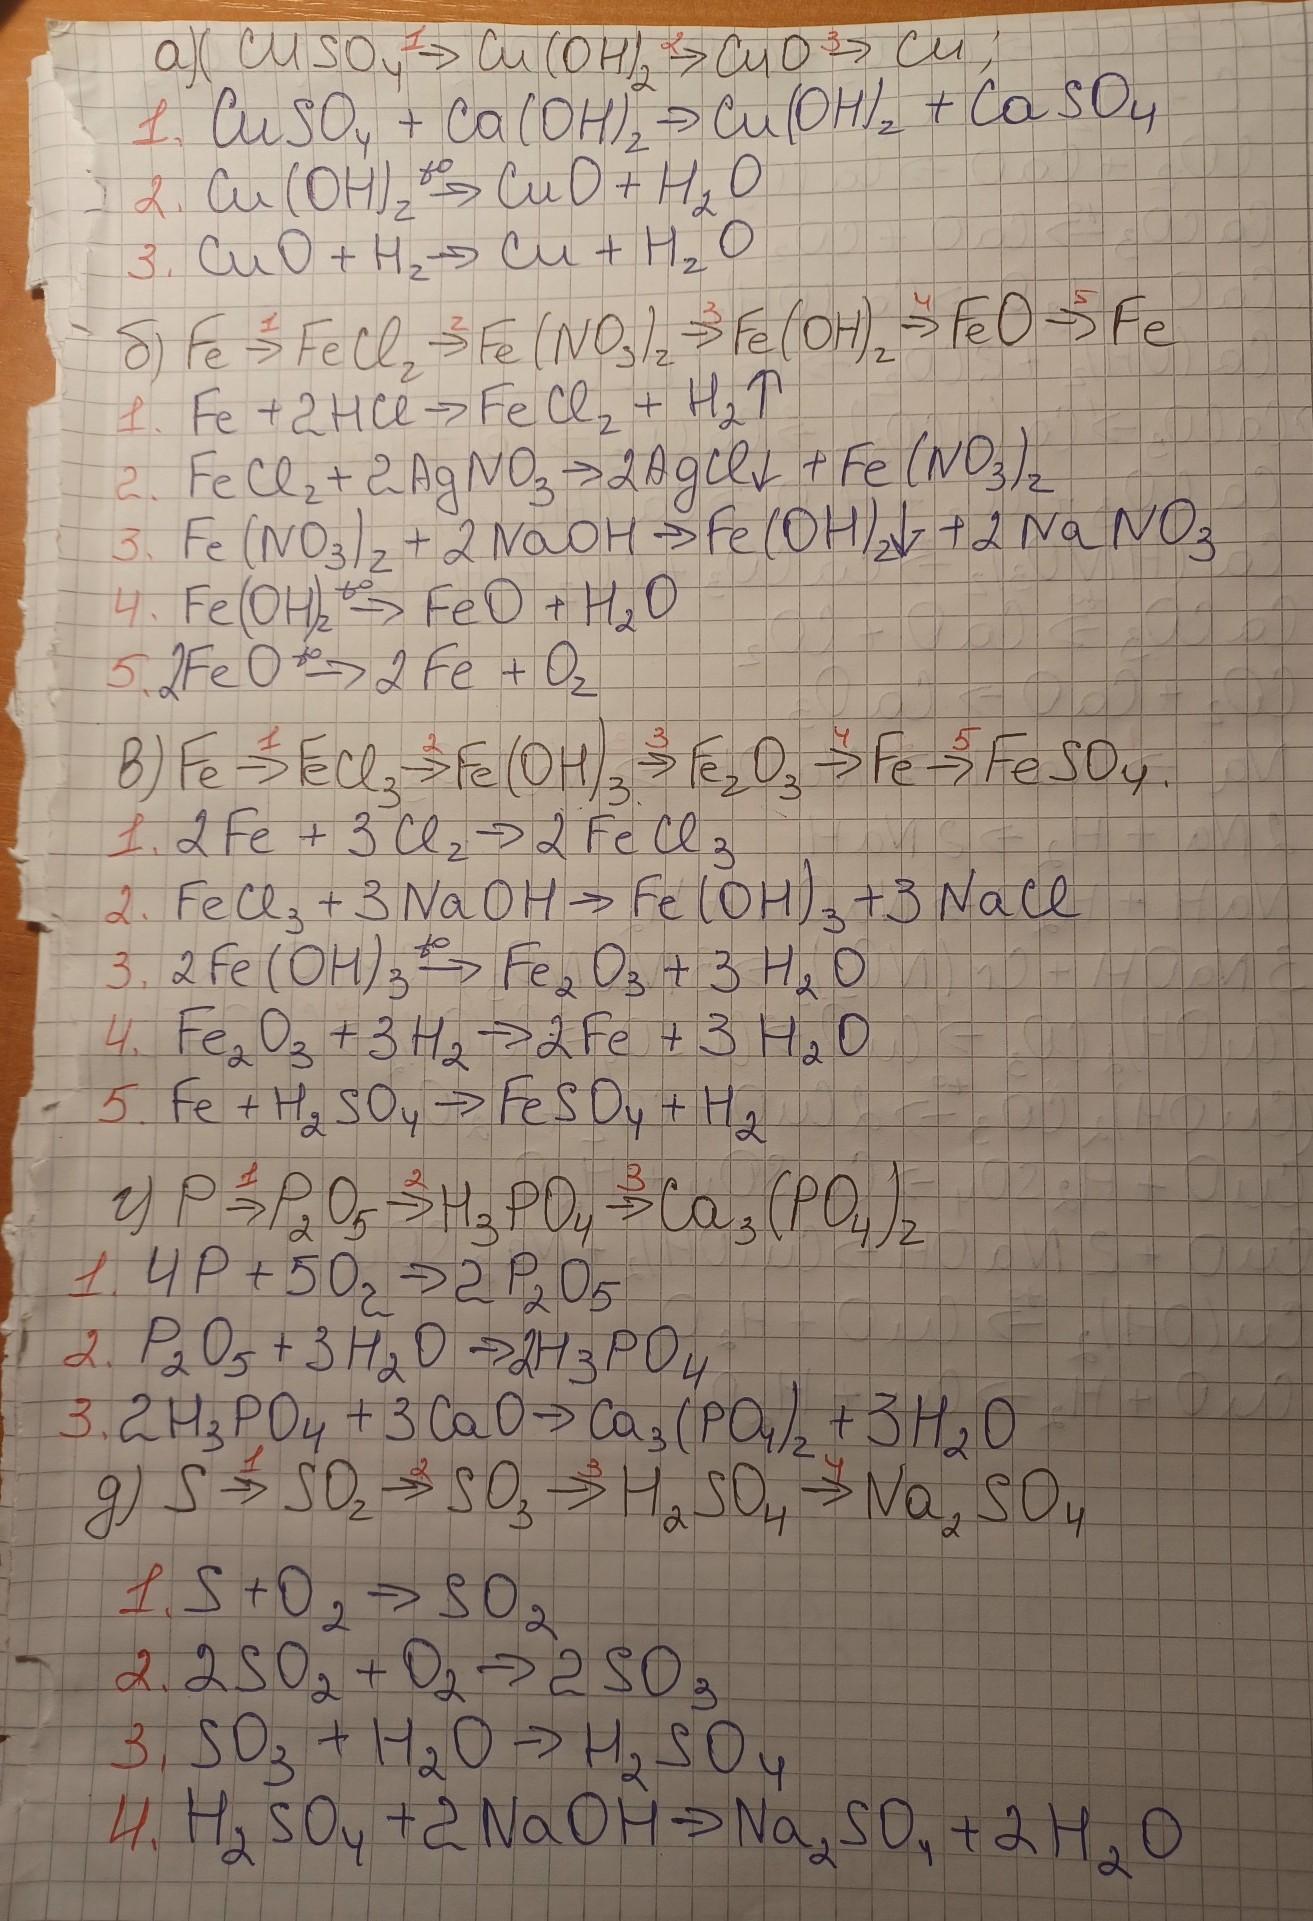 а)( CuSO₄ 1→ Cu(OH)₂ 2→ CuO 3→ Cu;
1. CuSO₄ + Ca(OH)₂ → Cu(OH)₂ + CaSO₄
2. Cu(OH)₂ t°→ CuO + H₂O
3. CuO + H₂ → Cu + H₂O
б) Fe 1→ FeCl₂ 2→ Fe(NO₃)₂ 3→ Fe(OH)₂ 4→ FeO 5→ Fe
1. Fe + 2HCl → FeCl₂ + H₂↑
2. FeCl₂ + 2AgNO₃ → 2AgCl↓ + Fe(NO₃)₂
3. Fe(NO₃)₂ + 2NaOH → Fe(OH)₂↓ + 2NaNO₃
4. Fe(OH)₂ t°→ FeO + H₂O
5. 2FeO t°→ 2Fe + O₂
в) Fe 1→ FeCl₃ 2→ Fe(OH)₃ 3→ Fe₂O₃ 4→ Fe 5→ FeSO₄.
1. 2Fe + 3Cl₂ → 2FeCl₃
2. FeCl₃ + 3NaOH → Fe(OH)₃ + 3NaCl
3. 2Fe(OH)₃ t°→ Fe₂O₃ + 3H₂O
4. Fe₂O₃ + 3H₂ → 2Fe + 3H₂O
5. Fe + H₂SO₄ → FeSO₄ + H₂
г) P 1→ P₂O₅ 2→ H₃PO₄ 3→ Ca₃(PO₄)₂
1. 4P + 5O₂ → 2P₂O₅
2. P₂O₅ + 3H₂O → 2H₃PO₄
3. 2H₃PO₄ + 3CaO → Ca₃(PO₄)₂ + 3H₂O
д) S 1→ SO₂ 2→ SO₃ 3→ H₂SO₄ 4→ Na₂SO₄
1. S + O₂ → SO₂
2. 2SO₂ + O₂ → 2SO₃
3. SO₃ + H₂O → H₂SO₄
4. H₂SO₄ + 2NaOH → Na₂SO₄ + 2H₂O